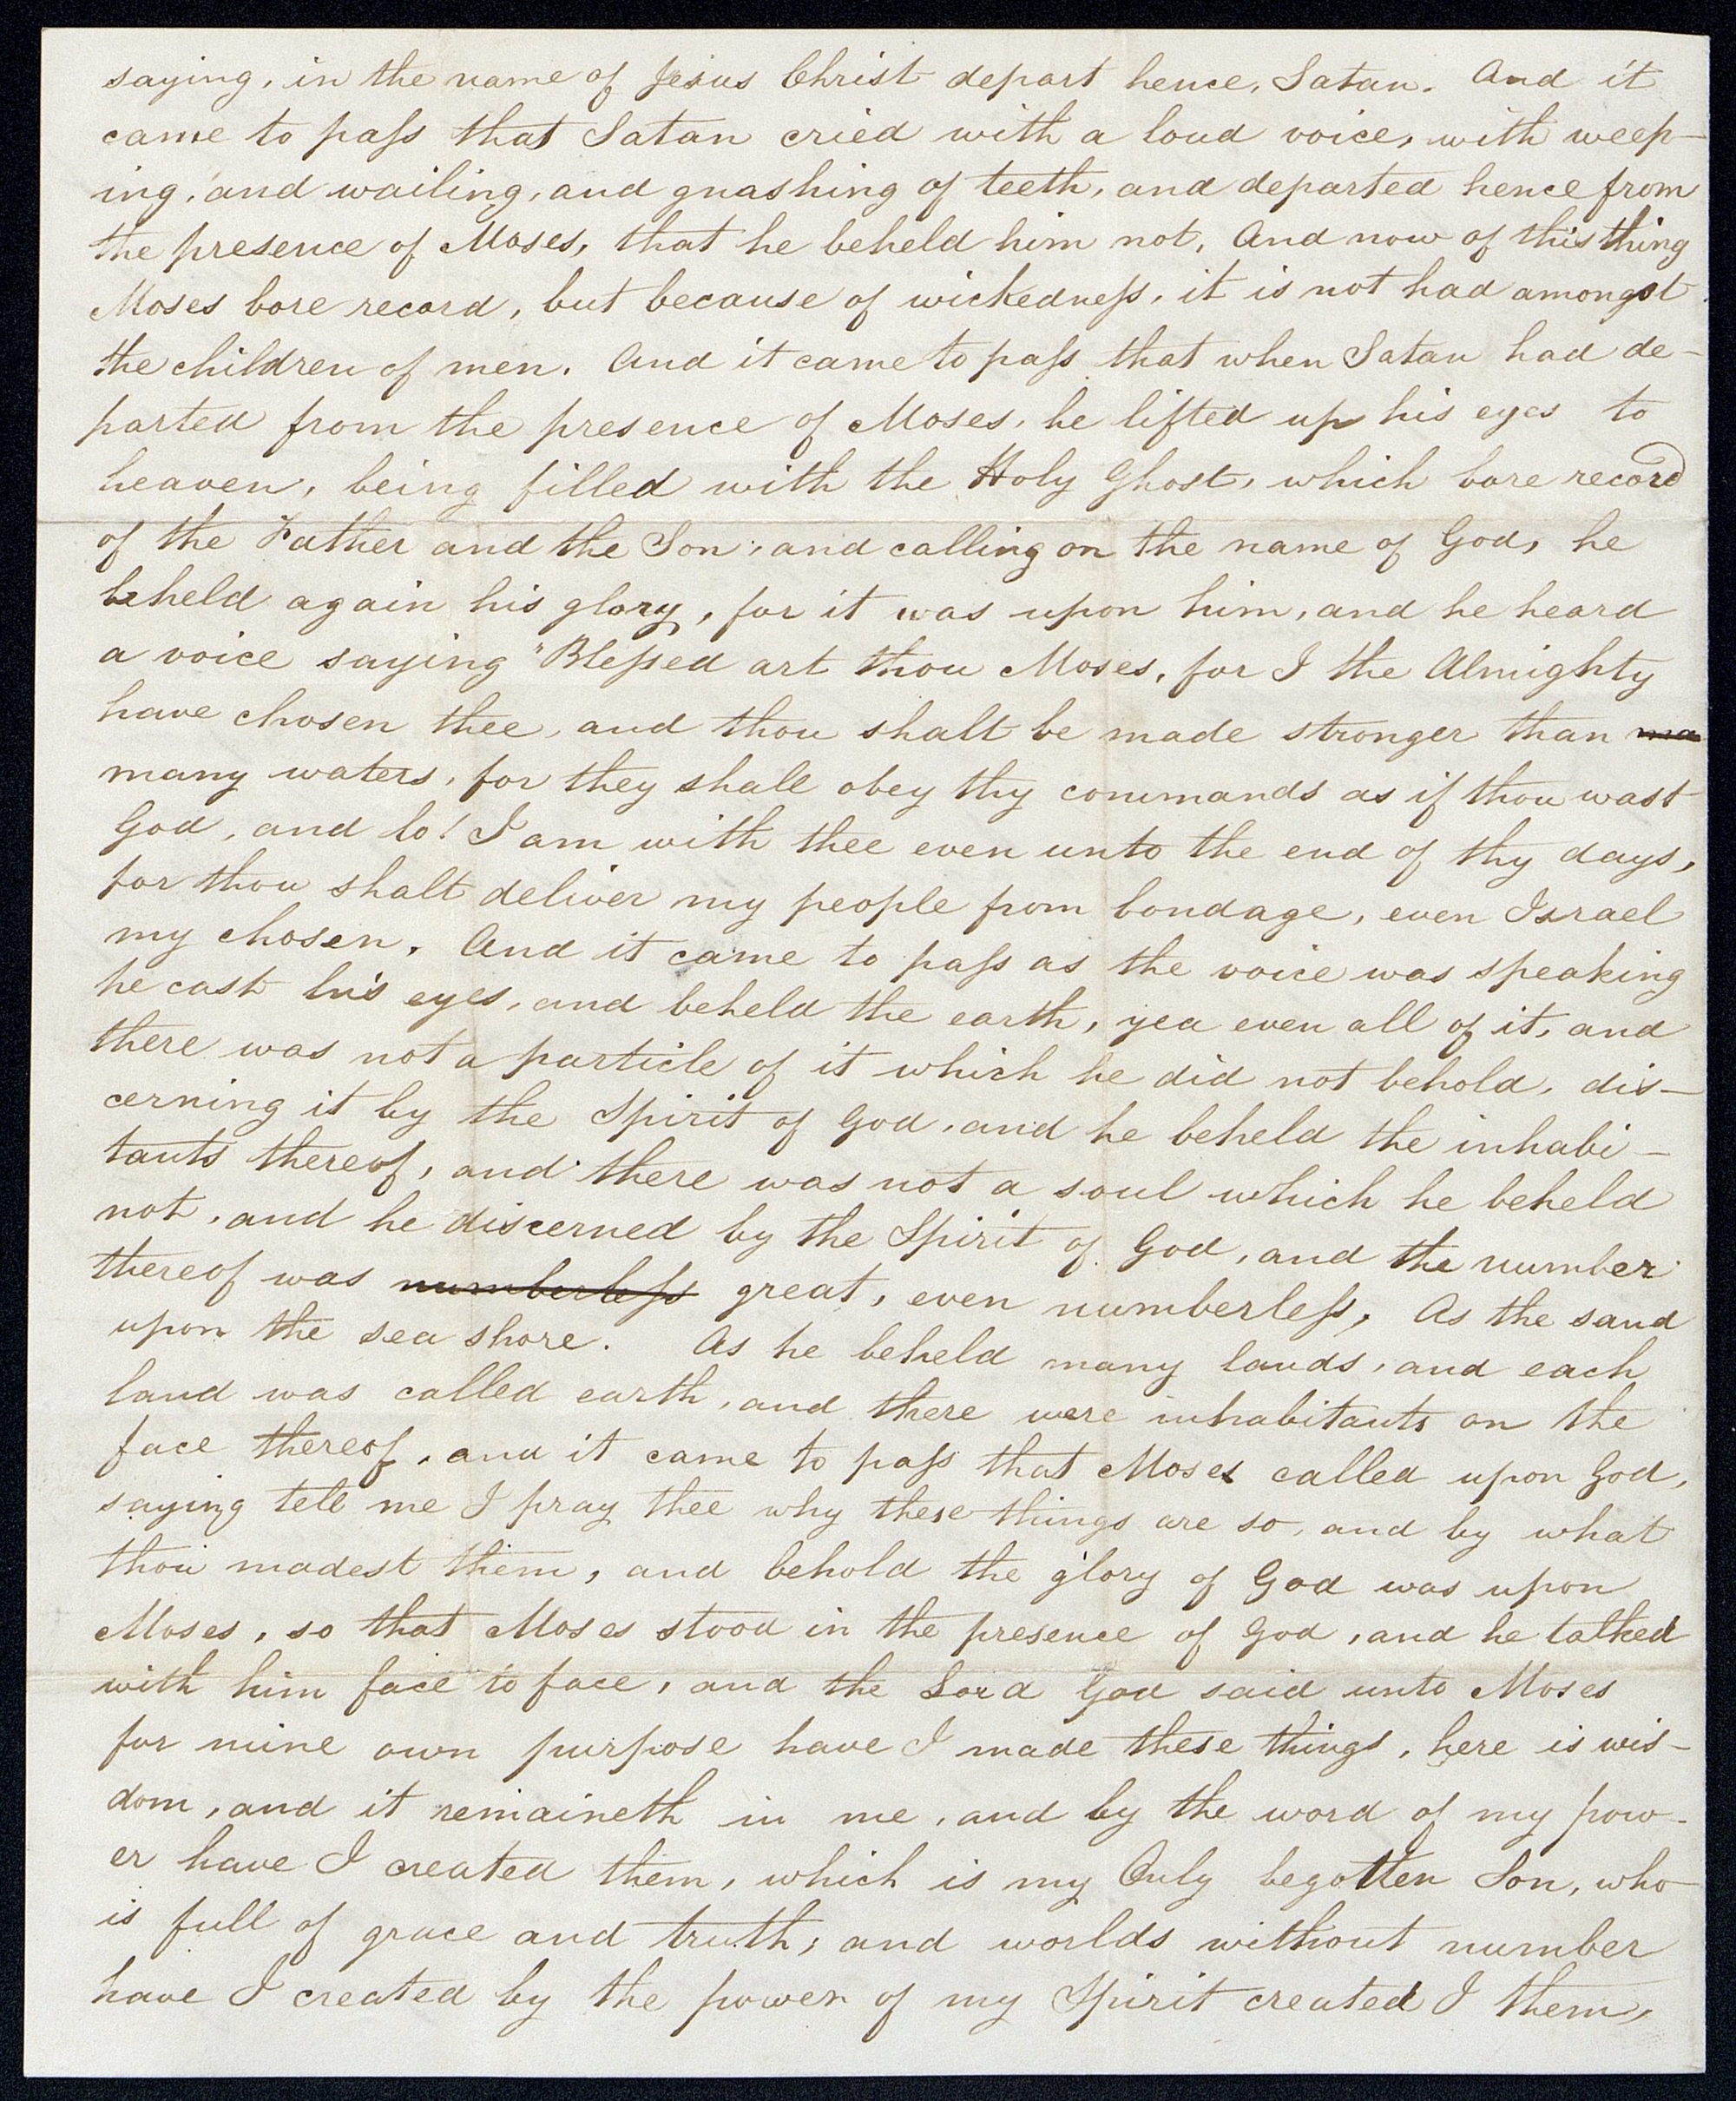 saying, in the name of Jesus Christ depart hence, Satan. And it
came to pass that Satan cried with a loud voice, with weep-
ing, and wailing, and gnashing of teeth, and departed hence from
the presence of Moses, that he beheld him not. And now of this thing
Moses bore record, but because of wickedness, it is not had amongst
the children of men. And it came to pass that when Satan had de-
parted from the presence of Moses, he lifted up his eyes to
heaven, being filled with the Holy Ghost, which bore record
of the Father and the Son, and calling on the name of God, he
beheld again his glory, for it was upon him, and he heard
a voice saying "Blessed art thou Moses, for I the Almighty
have chosen thee, and thou shalt be made stronger than ma
many waters, for they shall obey thy commands as if thou wast
God, and lo! I am with thee even unto the end of thy days,
for thou shalt deliver my people from bondage, even Israel
my chosen. And it came to pass as the voice was speaking
he cast his eyes, and beheld the earth, yea even all of it, and
there was not a particle of it which he did not behold, dis-
cerning it by the Spirit of God, and he beheld the inhabi-
tants thereof, and there was not a soul which he beheld
not, and he discerned by the Spirit of God, and the number
thereof was numberless great, even numberless, As the sand
upon the sea shore. As he beheld many lands, and each
land was called earth, and there were inhabitants on the
face thereof, and it came to pass that Moses called upon God,
saying tell me I pray thee why these things are so, and by what
thou madest them, and behold the glory of God was upon
Moses, so that Moses stood in the presence of God, and he talked
with him face to face, and the Lord God said unto Moses
for mine own purpose have I made these things, here is wis-
dom, and it remaineth in me, and by the word of my pow-
er have I created them, which is my Only begotten Son, who
is full of grace and truth, and worlds without number
have I created by the power of my Spirit created I them,